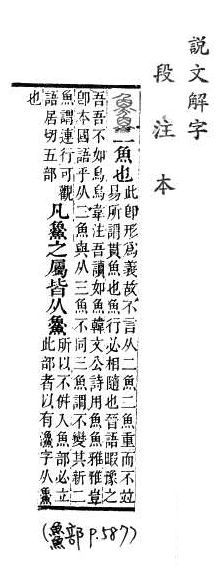 説文解字
段注本
䲆 二魚也
此卽形爲義故不言从二魚二魚重而不竝
易所謂貫魚也魚行必相隨也晉語暇豫之
吾吾不如烏烏韋注吾讀如魚韓文公詩用魚魚雅雅豈
卽本國語乎从二魚與从三魚不同三魚謂不變其新二
魚謂連行可觀
語居切五部
凡䲆之屬皆从䲆
所以不倂入魚部必立
此部者以有𤅀字从䲆
也
(䲆部 p.587)